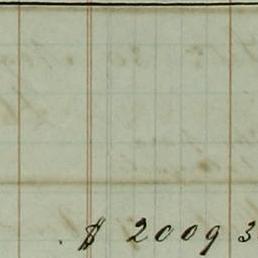 $ 2009 3